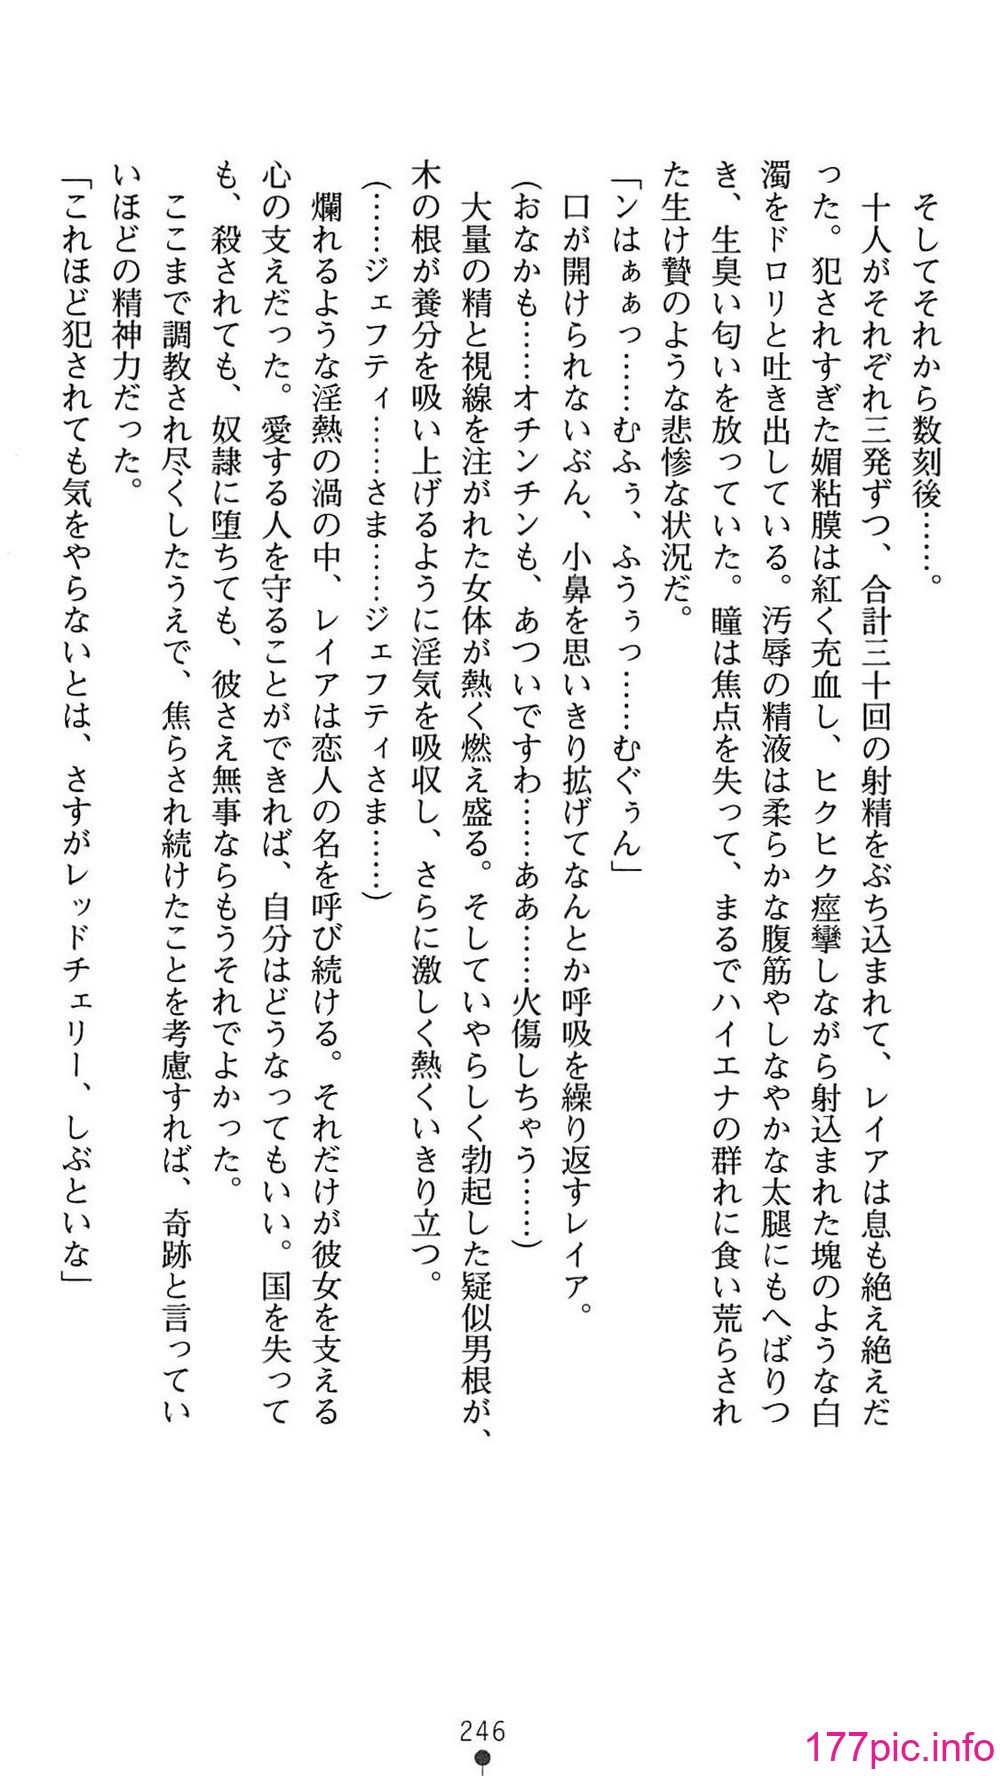 そしてそれから数刻後……。
十人がそれぞれ三発ずつ、合計三十回の射精をぶち込まれて、レイアは息も絶え絶えだ
った。犯されすぎた媚粘膜は紅く充血し、ヒクヒク痙攣しながら射込まれた塊のような白
濁をドロリと吐き出している。汚辱の精液は柔らかな腹筋やしなやかな太腿にもへばりつ
き、生臭い匂いを放っていた。瞳は焦点を失って、まるでハイエナの群れに食い荒らされ
た生け贄のような悲惨な状況だ。
「ンはぁぁっ……むふぅ、ふうぅっ……むぐぅん」
口が開けられないぶん、小鼻を思いきり拡げてなんとか呼吸を繰り返すレイア。
(おなかも……オチンチンも、あついですわ……ああ……火傷しちゃう……)
大量の精と視線を注がれた女体が熱く燃え盛る。そしていやらしく勃起した疑似男根が、
木の根が養分を吸い上げるように淫気を吸収し、さらに激しく熱くいきり立つ。
(……ジェフティ……さま……ジェフティさま……)
爛れるような淫熱の渦の中、レイアは恋人の名を呼び続ける。それだけが彼女を支える
心の支えだった。愛する人を守ることができれば、自分はどうなってもいい。国を失って
も、殺されても、奴隷に堕ちても、彼さえ無事ならもうそれでよかった。
ここまで調教され尽くしたうえで、焦らされ続けたことを考慮すれば、奇跡と言ってい
いほどの精神力だった。
「これほど犯されても気をやらないとは、さすがレッドチェリー、しぶといな」
246
177pic.info